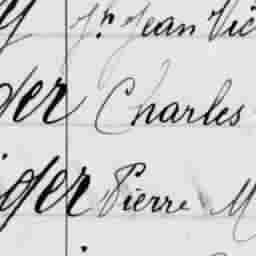 y Jh Jean Vic
der Charles
ger Pierre M